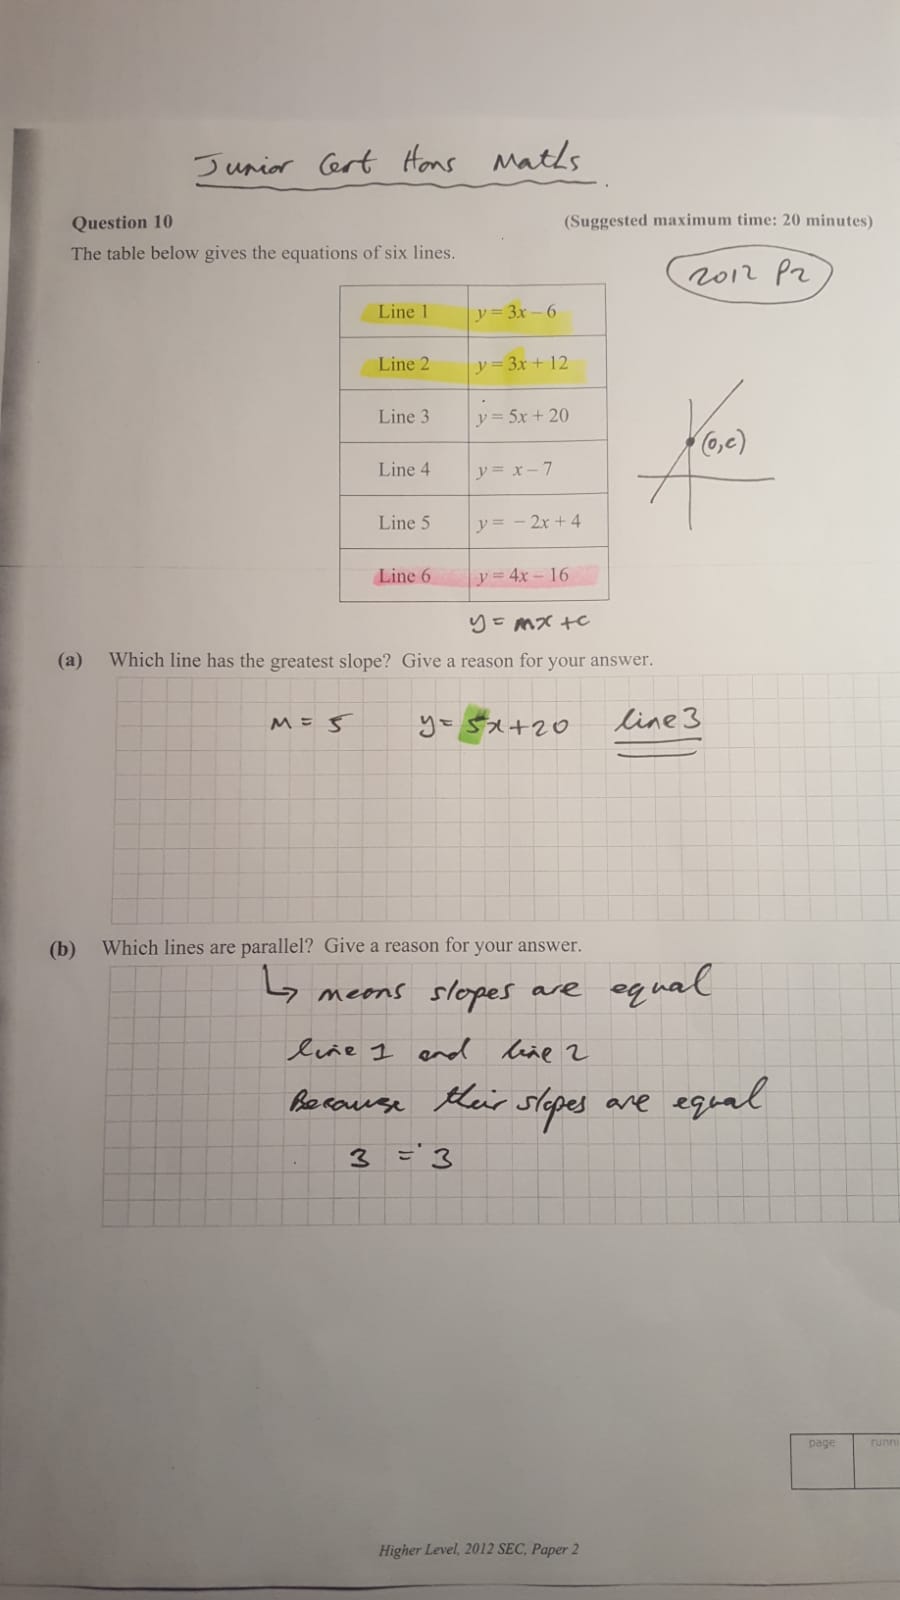 Junior Cert Hons Maths
Question 10
(Suggested maximum time: 20 minutes)
The table below gives the equations of six lines.
2012 P2
Line 1 y = 3x – 6
Line 2 y = 3x + 12
Line 3 y = 5x + 20
(0,c)
Line 4 y = x – 7
Line 5 y = – 2x + 4
Line 6 y = 4x – 16
y = mx + c
(a) Which line has the greatest slope? Give a reason for your answer.
m = 5 y = 5x + 20 line 3
(b) Which lines are parallel? Give a reason for your answer.
↳ means slopes are equal
line 1 and line 2
Because their slopes are equal
3 = 3
page
Higher Level, 2012 SEC, Paper 2